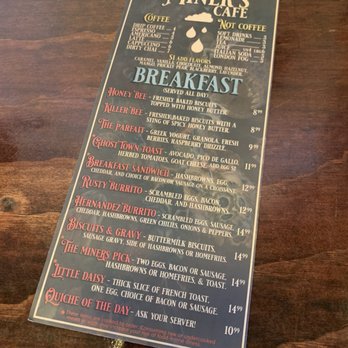 MINER'S
CAFÉ
COFFEE
NOT COFFEE
DRIP COFFEE
ESPRESSO
AMERICANO
LATTE
CAPPUCCINO
DIRTY CHAI
SOFT DRINKS
LEMONADE
JUICE
ITALIAN SODA
LONDON FOG
$1 ADD FLAVORS
CARAMEL, VANILLA, CHOCOLATE, ALMOND, HAZELNUT,
MANGO, PRICKLY PEAR, BLACKBERRY, LAVENDER
BREAKFAST
(SERVED ALL DAY)
HONEY BEE - FRESHLY BAKED BISCUITS
TOPPED WITH HONEY BUTTER. 8.99
KILLER BEE - FRESHLY BAKED BISCUITS WITH A
STING OF SPICY HONEY BUTTER. 8.99
THE PARFAIT - GREEK YOGURT, GRANOLA, FRESH
BERRIES, RASPBERRY DRIZZLE. 9.99
GHOST TOWN TOAST - AVOCADO, PICO DE GALLO,
HERBED TOMATOES, GOAT CHEESE. ADD EGG $1 11.99
BREAKFAST SANDWICH - HASHBROWNS, EGG,
CHEDDAR, AND CHOICE OF BACON OR SAUSAGE ON A CROISSANT. 12.99
RUSTY BURRITO - SCRAMBLED EGGS, BACON,
CHEDDAR, AND HASHBROWNS. 12.99
HERNANDEZ BURRITO - SCRAMBLED EGGS, SAUSAGE,
CHEDDAR, HASHBROWNS, GREEN CHILIES, ONIONS & PEPPERS. 14.99
BISCUITS & GRAVY - BUTTERMILK BISCUITS,
SAUSAGE GRAVY, SIDE OF HASHBROWNS OR HOMEFRIES. 14.99
THE MINERS PICK - TWO EGGS, BACON OR SAUSAGE,
HASHBROWNS OR HOMEFRIES, & TOAST. 14.99
LITTLE DAISY - THICK SLICE OF FRENCH TOAST,
ONE EGG, CHOICE OF BACON OR SAUSAGE. 14.99
QUICHE OF THE DAY - ASK YOUR SERVER! 10.99